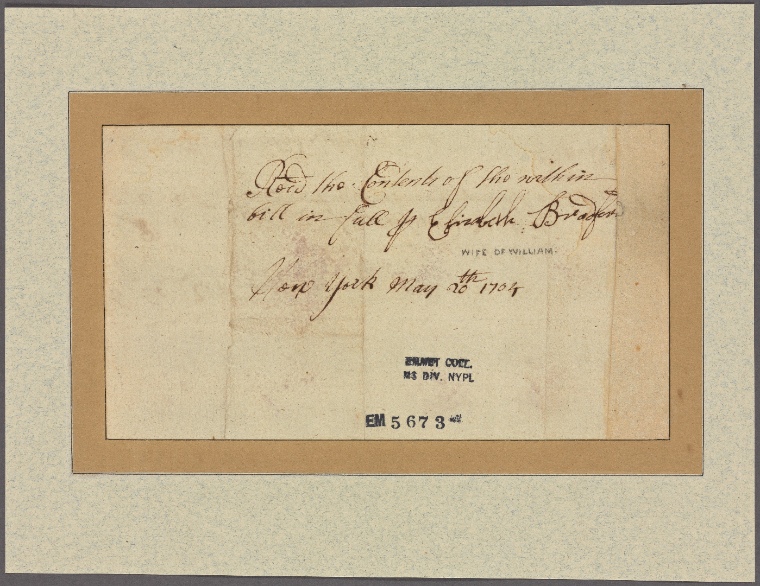 Recd the Contents of the within
bill in full p Elizabeth Bradford
WIFE OF WILLIAM.
New York May 20th 1704
EMMET COLL.
MS DIV. NYPL
EM 5673